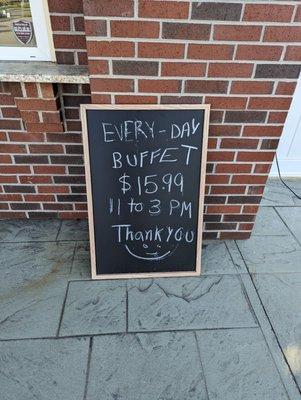 EVERY-DAY
BUFFET
$15.99
11 to 3 PM
Thank you